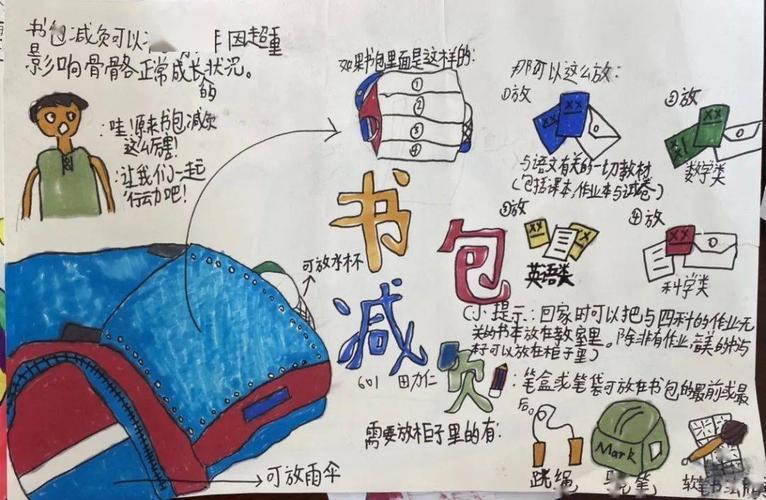 书包减负可以
因超重
是影响骨骼正常成长的状况。
:哇!原来书包减负
这么厉害!
:让我们一起
行动吧!
如果书包里面是这样的:
①
②
③
④
那可以这么放:
①放
XX
与语文有关的一切教材
(包括课本,作业本与试卷)
②放
XX
数学类
③放
XX
英语类
④放
XX
科学类
书包减负
可放水杯
601 田力仁
(小提示:回家时可以把与四科的作业无
关的书本放在教室里。除非有作业,音美的书与
本子可以放在柜子里)
:笔盒或笔袋可放在书包的最前或最
后。
需要放柜子里的有:
跳绳
Mark
笔
软
可放雨伞